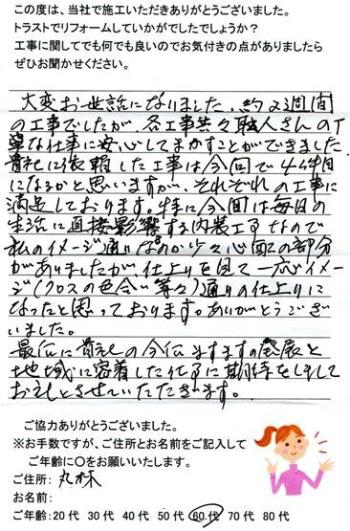 この度は、当社で施工いただきありがとうございました。
トラストでリフォームしていかがでしたでしょうか？
工事に関してでも何でも良いのでお気付きの点がありましたら
ぜひお聞かせください。
大変お世話になりました。約2週間
の工事でしたが、各工事共々職人さんの丁
寧な仕事に安心してまかすことができました。
貴社に依頼した工事は今回で4件目
になるかと思いますが、それぞれの工事に
満足しております。特に今回は毎日の
生活に直接影響する内装工事なので
私のイメージ通りなるのか少々心配の部分
がありましたが、仕上りを見て一応イメー
ジ(クロスの色合い等々)通りの仕上りに
なったと思っております。ありがとうござ
いました。
最后に貴社の今后ますますの発展と
地域に密着した仕事に期待をしまして
お礼とさせていただきます。
ご協力ありがとうございました。
※お手数ですが、ご住所とお名前をご記入して
ご年齢に○をお願いいたします。
ご住所:
お名前:
ご年齢:20代 30代 40代 50代 60代 70代 80代